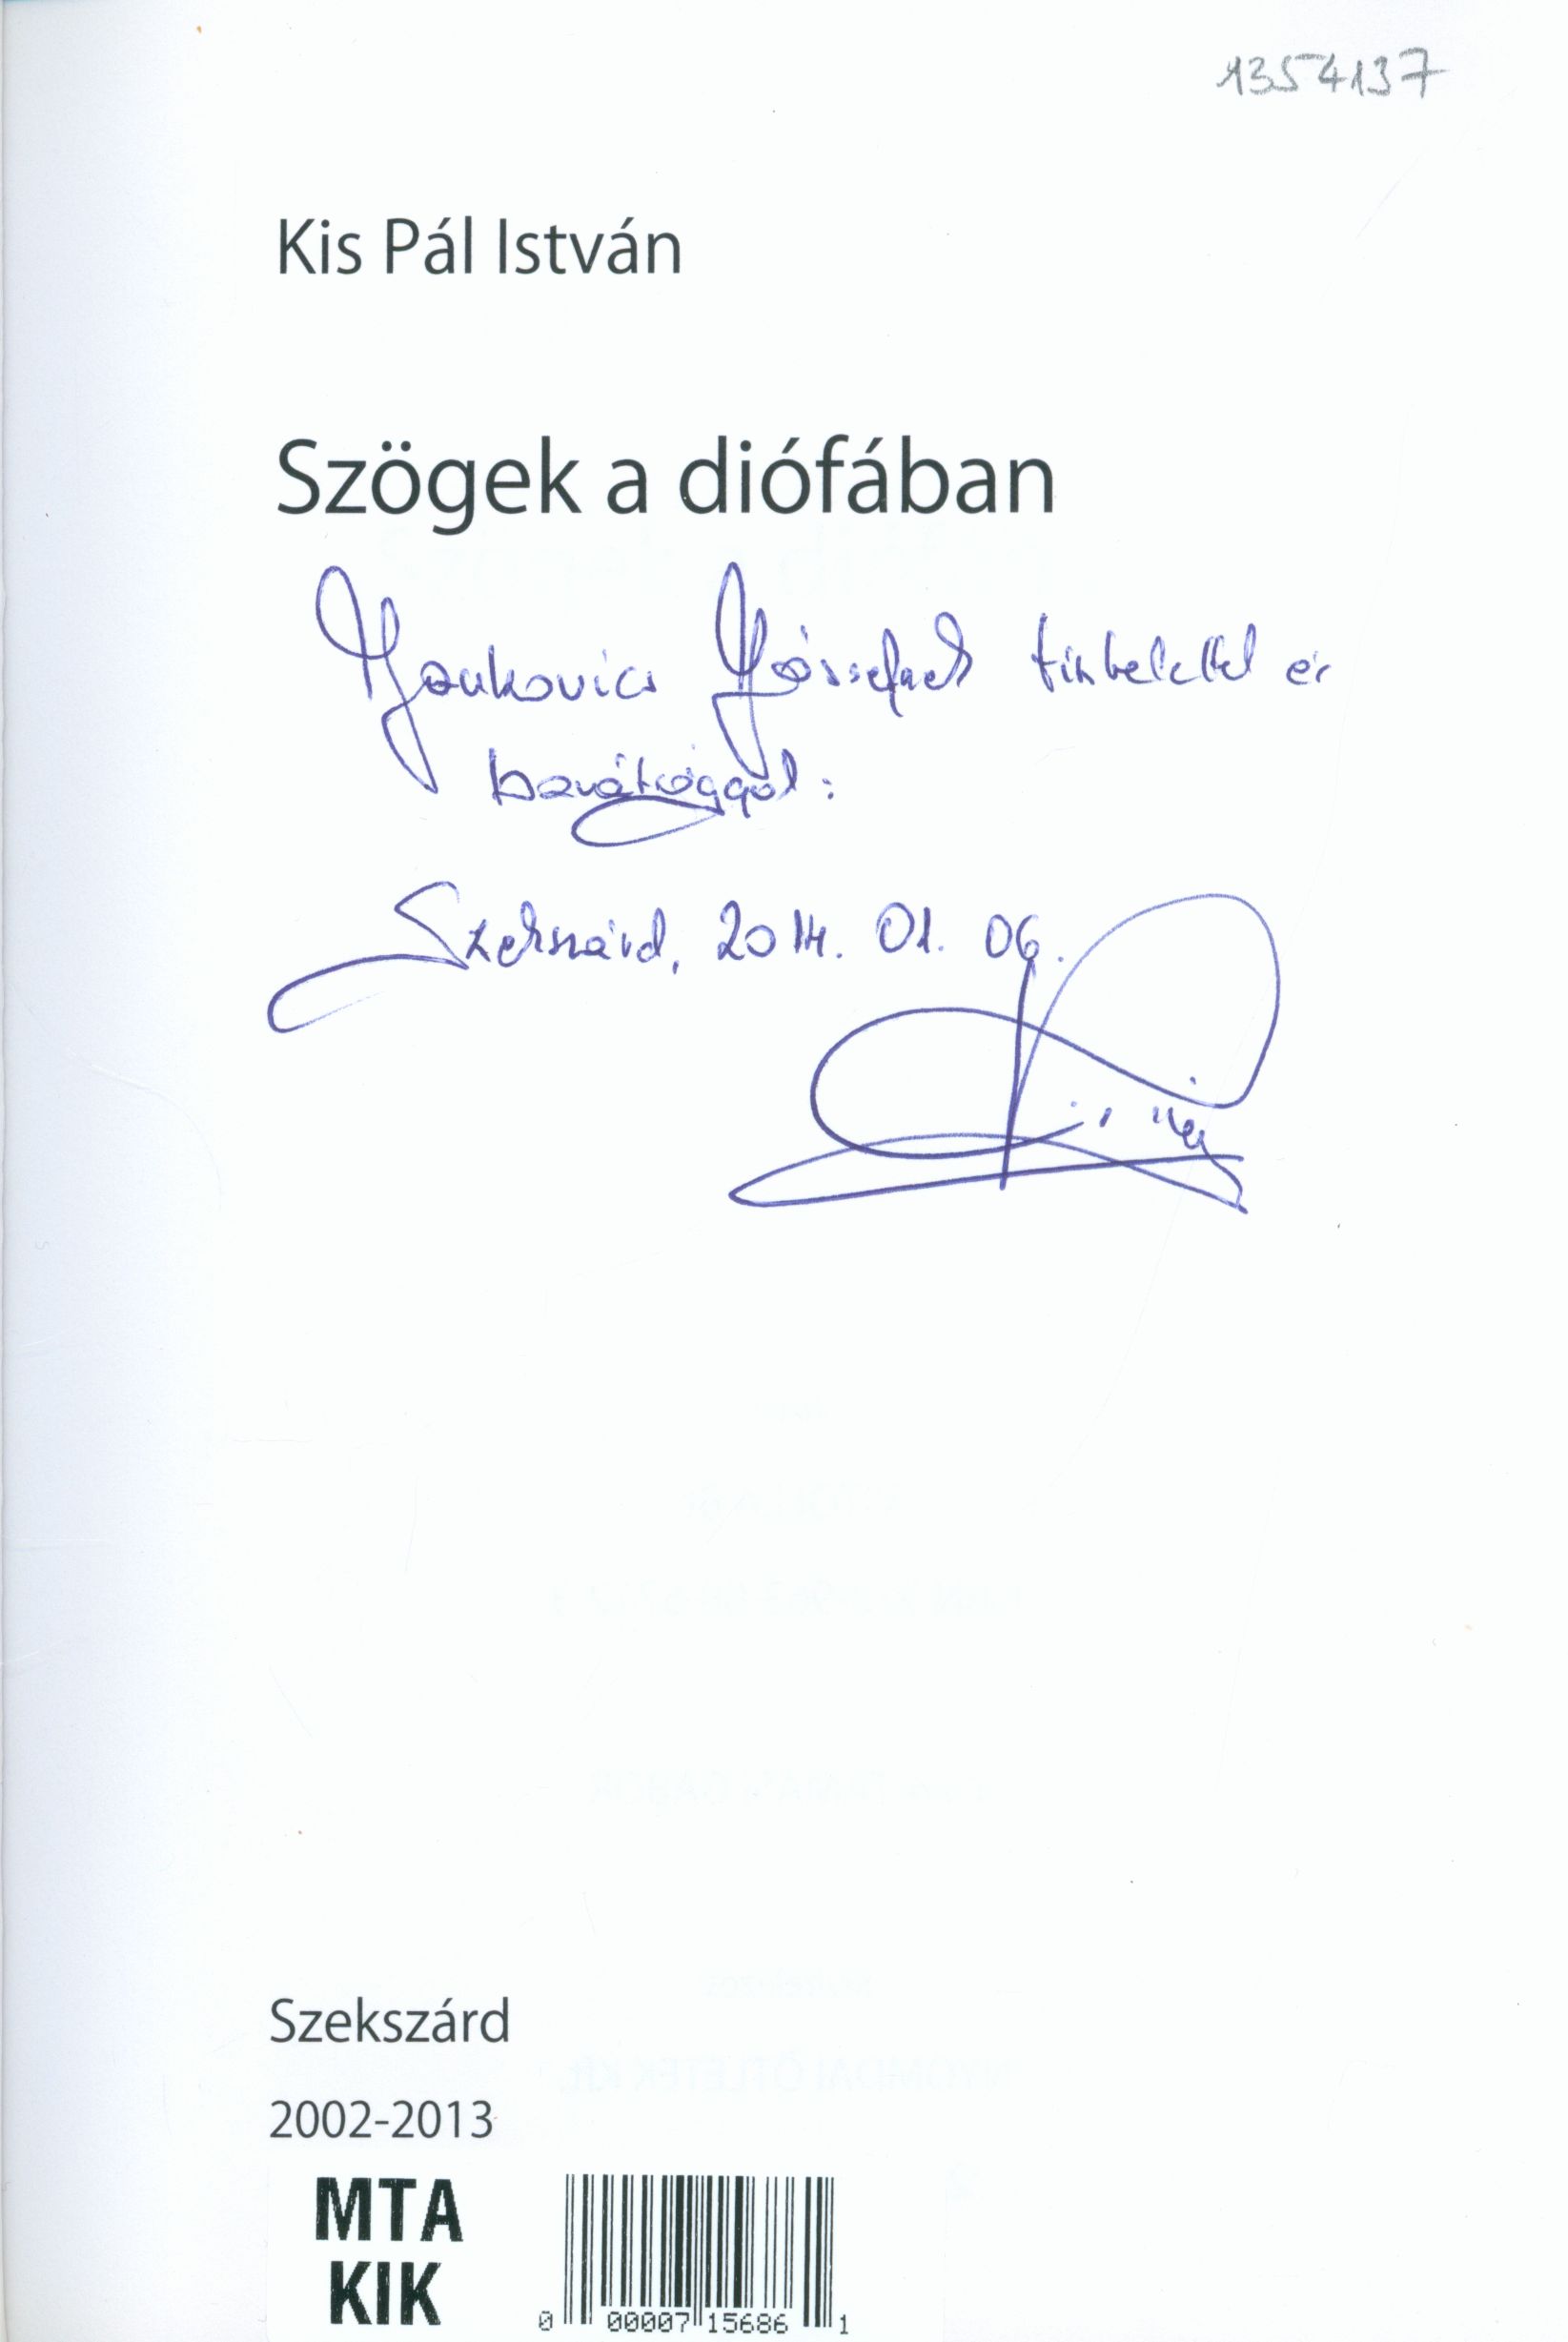 1354137
Kis Pál István
Szögek a diófában
Jankovics Józsefnek tisztelettel és
barátsággal:
Szekszárd, 2014. 01. 06.
Szekszárd
2002-2013
MTA
KIK
0 00007 15686 1